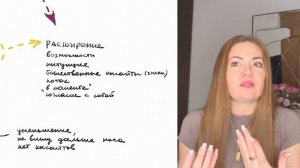 расширение
возможности
интуиция
божественные инсайты
поток
"в моменте"
согласие с собой
уменьшение,
не вижу дальше носа
нет инсайтов